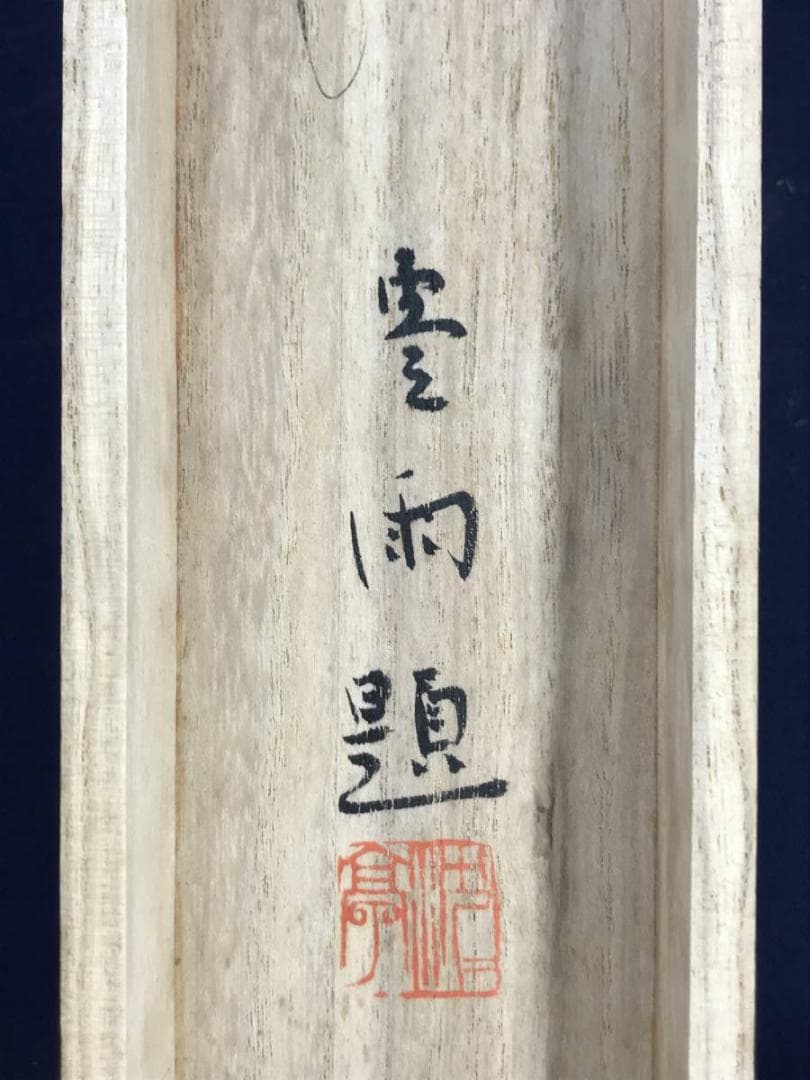 雲雨題